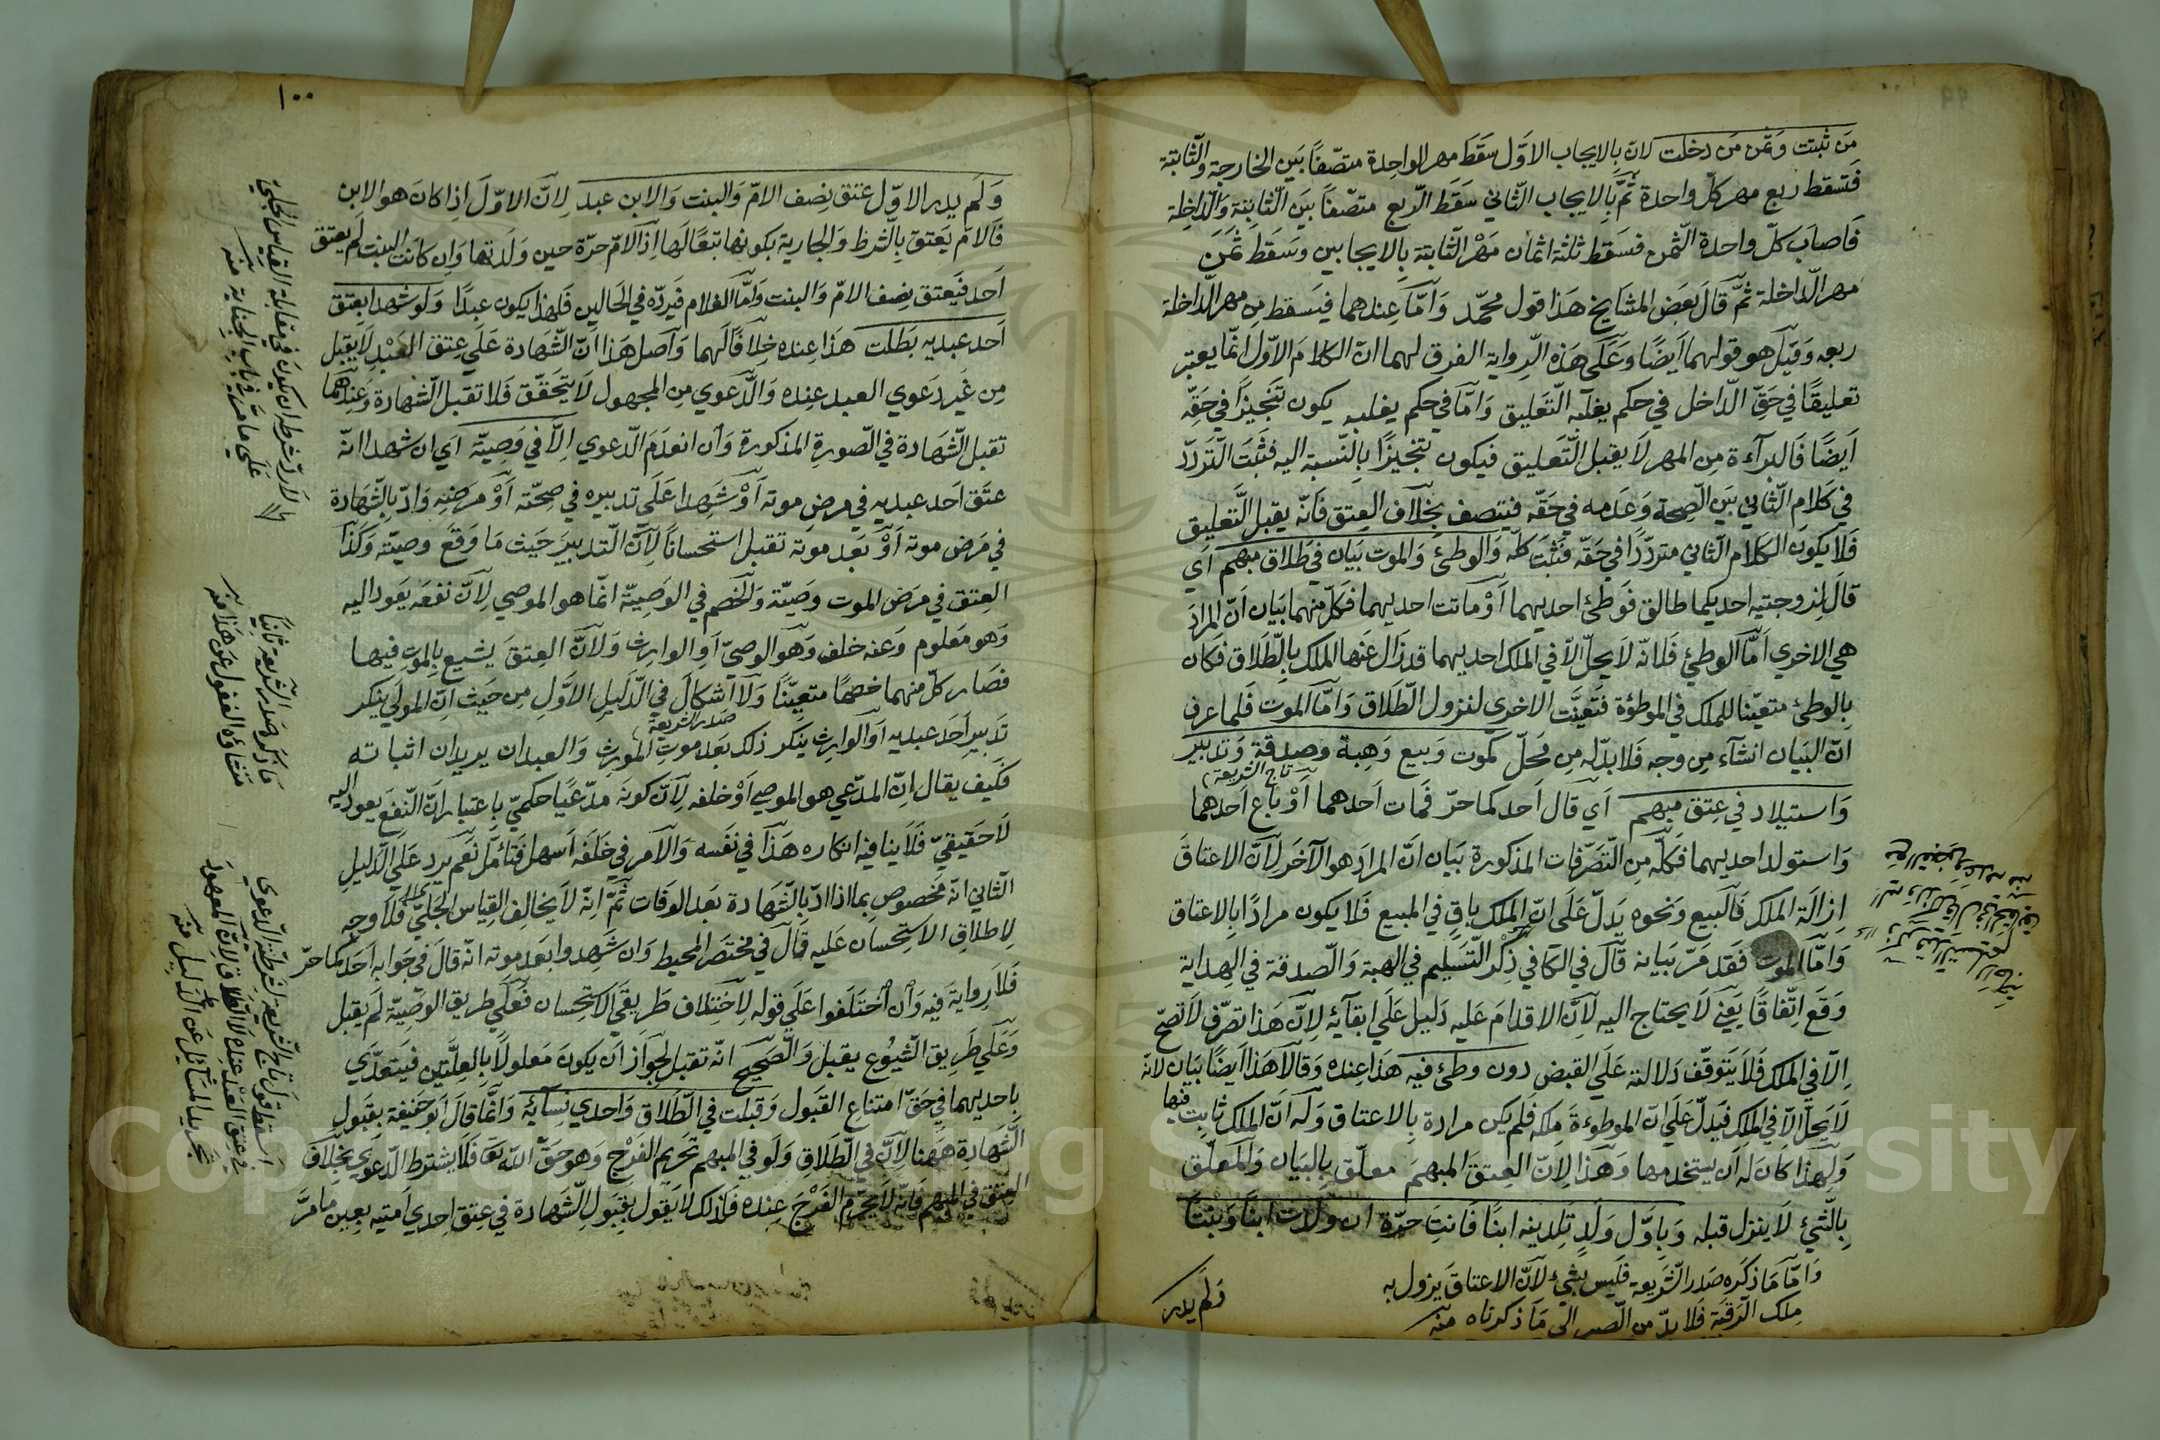 ٩٩
من ثبتت وثمن من دخلت لان بالايجاب الاوّل سقط مهر الواحدة متصّفاً بين الخارجة والثابتة
فتسقط ربع مهر كلّ واحدة ثمّ بالايجاب الثّاني سقط الرّبع متصّفاً بين الثابتة والدّاخلة
فاصاب كلّ واحدة الثّمن فسقط ثلثة اثمان مهر الثّابتة بالايجابين وسقط ثمن
مهر الدّاخلة ثمّ قال بعض المشايخ هذا قول محمّد وامّا عندهما فيسقط من مهر الدّاخلة
ربعه وقيل هو قولهما ايضًا وعلى هذه الرّواية الفرق لهما انّ الكلام الاوّل انّما يعتبر
تعليقًا في حقّ الدّاخل في حكم يقبل التّعليق وامّا في حكم يقبله يكون تنجيزًا في حقّه
ايضًا فالبرآءة من المهر لا يقبل التّعليق فيكون تنجيزًا بالنّسبة اليه فثبت التّردّد
في كلام الثّاني بين الصّحة وعدمه في حقّه فيتصف بخلاف العتق فانّه يقبل التّعليق
فلا يكون الكلام الثّاني متردّدًا في حقّه فثبت كلّه والوطئ والموت بيان في طلاق مبهم اي
قال لزوجتيه احديكما طالق فوطئ احديهما او ماتت احديهما فكلّ منهما بيان انّ المراد
هي الاخرى امّا الوطئ فلانّه لا يحلّ الاّ في الملك احديهما قد زال عنها الملك بالطّلاق فكان
بالوطئ متعيّنا للملك في الموطؤة فتعيّنت الاخرى لنزول الطّلاق وامّا الموت فلما عرف
انّ البيان انشاء من وجه فلا بدّ له من محلّ كموت وبيع وهبة وصدقة وتدبير
تاج الشريعة
واستيلاد في عتق مبهم اي قال احدكما حرّ فمات احدهما او باع احدهما
واستولد احديهما فكلّه من التّصرّفات المذكورة بيان انّ المراد هو الآخر لانّ الاعتاق
ازالة الملك فالبيع ونحوه يدلّ على انّ الملك باقٍ في المبيع فلا يكون مرادًا بالاعتاق
وامّا الموت فقد مرّ بيانه قال في الكافي ذكر التّسليم في الهبة والصّدقة في الهداية
وقع اتّفاقًا يعني لا يحتاج اليه لانّ الاقدام عليه دليل على ابقائه لانّ هذا تصرّف لا تصحّ
الاّ في الملك فلا يتوقّف دلالته على القبض دون وطئ فيه هذا عنده وقالا هذا ايضًا بيان لانّه
لا يحلّ الاّ في الملك فيدلّ على انّ الموطوءة ملكه فلم يكن مرادة بالاعتاق وله انّ الملك ثابت فيها
ولهذا كان له ان يستخدمها وهذا لانّ العتق المبهم معلّق بالبيان والمعلّق
بالشّئ لا ينزل قبله وباوّل ولد تلدينه ابنًا فانت حرّة ان ولدت ابنًا وبنتًا
وامّا ما ذكره صدر الشّريعة فليس بشئ لانّ الاعتاق يزول به
ملك الرّقبة فلا بدّ من الصّير الى ما ذكرناه منه
ولم يدر
١٠٠
ولم يدر الاوّل عتق نصف الامّ والبنت والابن عبد لانّ الاوّل اذا كان هو الابن
فالامّ يعتق بالشّرط والجارية بكونها تبعًا لها اذ الامّ حرّة حين ولدتها وان كانت البنت لم يعتق
احد فيعتق نصف الامّ والبنت وامّا الغلام فيردّه في الحالين فلهذا يكون عبدًا ولو شهدا بعتق
احد عبديه بطلت هذا عنده خلافًا لهما واصل هذا انّ الشّهادة على عتق العبد لا يقبل
من غير دعوي العبد عنده والدّعوي من المجهول لا يتحقّق فلا تقبل الشّهادة وعندهما
تقبل الشّهادة في الصّورة المذكورة وان انعدم الدّعوي الاّ في وصيّة اي ان شهدا انّه
عتق احد عبديه في مرض موته او شهدا على تدبيره في صحّته او مرضه وادّ بالشّهادة
في مرض موته او بعد موته تقبل استحسانًا لانّ التّدبير حيث ما وقع وصيّة وكذا
العتق في مرض الموت وصيّة والخصم في الوصيّة انّما هو الموصي لانّ نفعه يعود اليه
وهو معلوم وعنه خلف وهو الوصيّ او الوارث ولانّ العتق يشيع بالموت فيهما
فصار كلّ منهما خصمًا متعيّنًا ولا اشكال في الدّليل الاوّل من حيث انّ المولى ينكر
صدر الشريعة
تدبير احد عبديه او الوارث ينكر ذلك بعد موت المورث والعبدان يريدان اثباته
فكيف يقال انّ المدّعي هو الموصي او خلفه لانّ كونه مدّعيًا حكميّ باعتبار انّ النّفع يعود اليه
لا حقيقيّ فلا ينافيه انكاره هذا في نفسه والامر في خلفه اسهل فتأمّل نعم يرد على الدّليل
الثّاني انّه مخصوص بما اذا ادّ بالشّهادة بعد الوفات ثمّ انّه لا يخالف القياس الجليّ فلا وجه
لاطلاق الاستحسان عليه قال في مختصر المحيط وان شهدوا بعد موته انّه قال في جوابه احدكما حرّ
فلا رواية فيه وان اختلفوا على قوله لاختلاف طريقي الاستحسان فعلى طريق الوصيّة لم يقبل
وعلى طريق الشّيوع يقبل والصّحيح انّه تقبل لجواز ان يكون معلولاً بالعلّتين فيتعدّي
باحديهما في حقّ امتناع القبول وقبلت في الطّلاق واحدي نسائه وانّما قال ابو حنيفة بقبول
الشّهادة ههنا لانّ في الطّلاق ولو في المبهم تحريم الفرج وهو حقّ اللّه تع فلا يشترط الدّعوي بخلاف
العتق في المبهم فانّه لا يحرّم الفرج عنده فلذلك لا يقول بقبول الشّهادة في عتق احدي امتيه بعين ما مرّ
لا ردّ شرط ان يكون في مقابلة القياس الجليّ
على ما صرّح به في باب الجناية منه
ما ذكره صدر الشّريعة ثانيًا
منشاؤه الغفول عن هذا منه